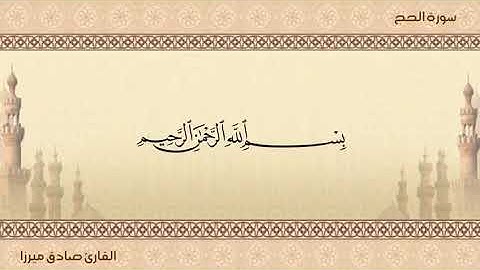 سورة الحج
بِسْمِ ٱللَّهِ ٱلرَّحْمَٰنِ ٱلرَّحِيمِ
القارئ صادق ميرزا